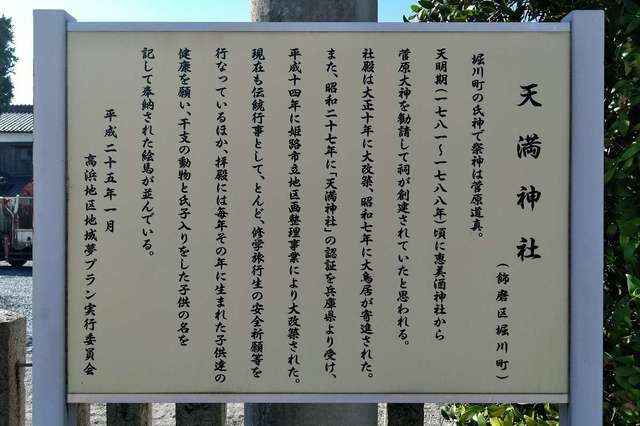 天満神社
(飾磨区堀川町)
堀川町の氏神で祭神は菅原道真。
天明期(一七八一〜一七八八年)頃に恵美酒神社から
菅原大神を勧請して祠が創建されていたと思われる。
社殿は大正十年に大改築、昭和七年に大鳥居が寄進された。
また、昭和二十七年に「天満神社」の認証を兵庫県より受け、
平成十四年に姫路市立地区画整理事業により大改築された。
現在も伝統行事として、とんど、修学旅行生の安全祈願等を
行なっているほか、拝殿には毎年その年に生まれた子供達の
健康を願い、干支の動物と氏子入りをした子供の名を
記して奉納された絵馬が並んでいる。
平成二十五年一月
高浜地区地域夢プラン実行委員会